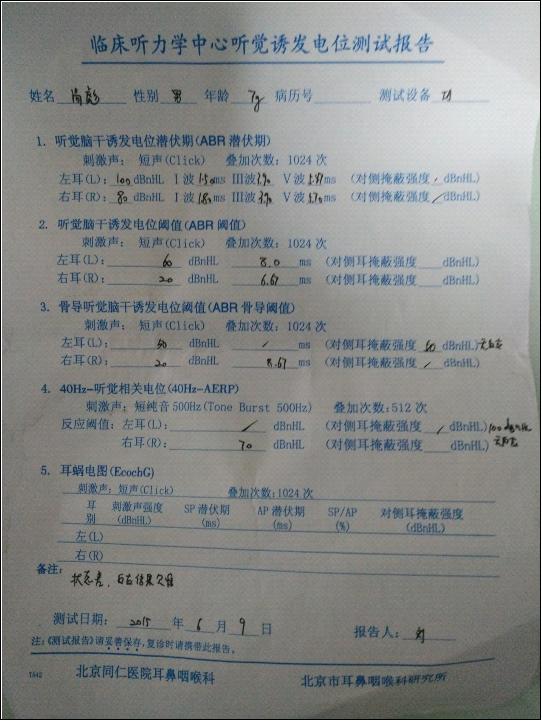 临床听力学中心听觉诱发电位测试报告
姓名 性别 男 年龄 7y 病历号 测试设备
1. 听觉脑干诱发电位潜伏期(ABR 潜伏期)
刺激声: 短声(Click) 叠加次数: 1024 次
左耳(L): 100 dBnHL I 波 1.50 ms III波 3.90 V 波 5.97 ms (对侧掩蔽强度 / dBnHL)
右耳(R): 80 dBnHL I 波 1.80 ms III波 3.90 V 波 5.70 ms (对侧掩蔽强度 / dBnHL)
2. 听觉脑干诱发电位阈值(ABR 阈值)
刺激声: 短声(Click) 叠加次数: 1024 次
左耳(L): 60 dBnHL 8.0 ms (对侧耳掩蔽强度 dBnHL)
右耳(R): 20 dBnHL 6.67 ms (对侧耳掩蔽强度 dBnHL)
3. 骨导听觉脑干诱发电位阈值(ABR 骨导阈值)
刺激声: 短声(Click) 叠加次数: 1024 次
左耳(L): 50 dBnHL / ms (对侧耳掩蔽强度 60 dBnHL) 无反应
右耳(R): 20 dBnHL 8.67 ms (对侧耳掩蔽强度 / dBnHL)
4. 40Hz-听觉相关电位(40Hz-AERP)
刺激声: 短纯音 500Hz(Tone Burst 500Hz) 叠加次数: 512 次
反应阈值: 左耳(L): / dBnHL (对侧耳掩蔽强度 / dBnHL) 100 dBnHL
右耳(R): 70 dBnHL (对侧耳掩蔽强度 dBnHL) 无反应
5. 耳蜗电图(EcochG)
刺激声: 短声(Click) 叠加次数: 1024 次
耳别 刺激声强度 (dBnHL) SP 潜伏期 (ms) AP 潜伏期 (ms) SP/AP (%) 对侧耳掩蔽强度 (dBnHL)
左(L)
右(R)
备注: 状态差,
测试日期: 2015 年 6 月 9 日 报告人: 刘
注:《测试报告》请妥善保存,复诊时请携带此报告。
1542 北京同仁医院耳鼻咽喉科 北京市耳鼻咽喉科研究所